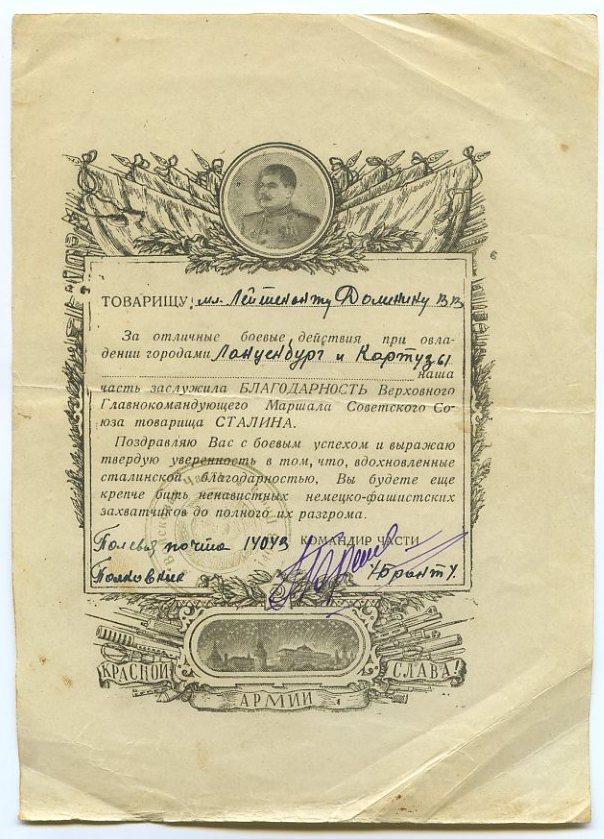 ТОВАРИЩУ мл. Лейтенанту Доминину В В
За отличные боевые действия при овла-
дении городами Лануенбург и Картузы
наша
часть заслужила БЛАГОДАРНОСТЬ Верховного
Главнокомандующего Маршала Советского Со-
юза товарища СТАЛИНА.
Поздравляю Вас с боевым успехом и выражаю
твердую уверенность в том, что, вдохновленные
сталинской благодарностью, Вы будете еще
крепче бить ненавистных немецко-фашистских
захватчиков до полного их разгрома.
Полевая почта 14043 КОМАНДИР ЧАСТИ
Полковник
КРАСНОЙ АРМИИ СЛАВА!